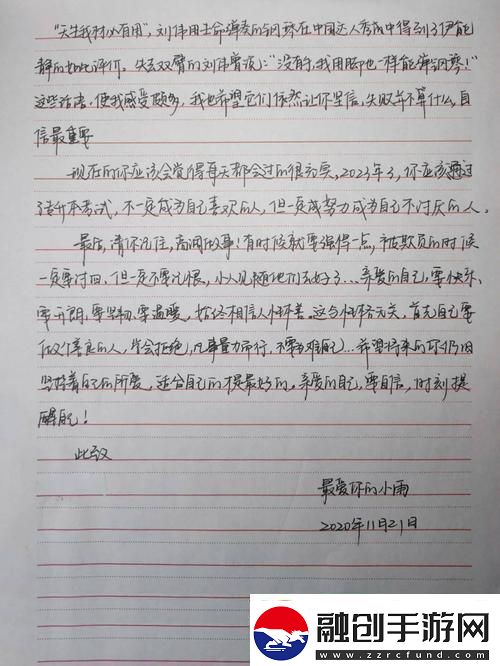 “天生我材必有用”,刘伟用生命弹奏的钢琴在中国达人秀成中得到了伊能
静的如此评价。失去双臂的刘伟曾说:“没有手,我用脚也一样能弹钢琴!”
这些话语,使我感受颇多,我也希望它们依然让你坚信,失败并不算什么,自
信最重要
现在的你应该会觉得每天都会过的很充实,2023年了,你应该通过
专升本考试,不一定成为自己喜欢的人,但一定要努力成为自己不讨厌的人。
最后,请你记住,高调做事!有时候就要强得一点,被欺负的时候
一定要讨回,但一定不要记恨,小人见随他们去好了…亲爱的自己,要快乐、
要开朗、要坚韧、要温暖,始终相信人性本善。这与性格无关,首先自己要
做个善良的人,学会拒绝,凡事量力而行,不要为难自己…希望将来的你仍旧
坚持着自己的所爱,适合自己的便是最好的。亲爱的自己,要自信,时刻提
醒自己!
此致
最爱你的小雨
2020年11月21日
融创手游网
www.zzrcfund.com